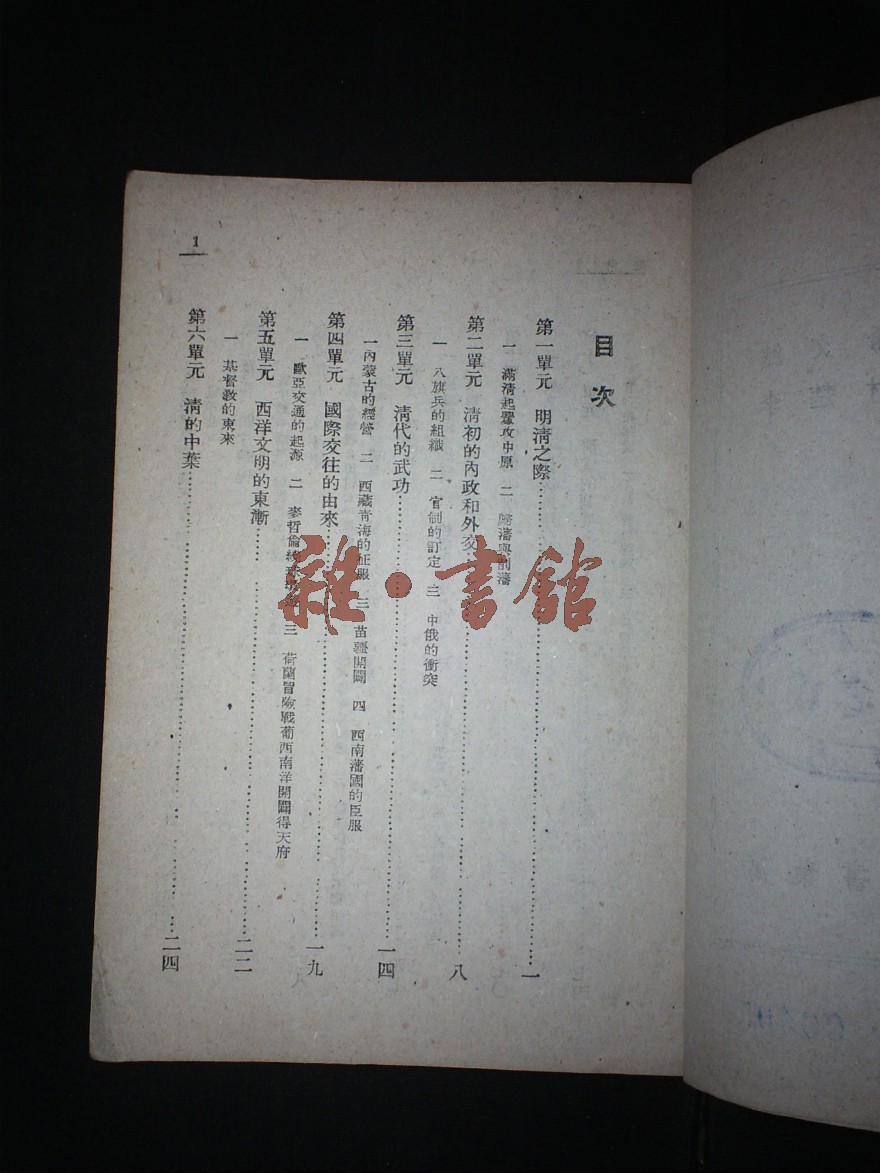 目次
第一單元 明清之際……一
一 滿清起釁攻中原 二 藩與削藩
第二單元 清初的內政和外交……八
一 八旗兵的組織 二 官制的訂定 三 中俄的衝突
第三單元 清代的武功……一四
一 內蒙古的經營 二 西藏青海的征服 三 苗疆開闢 四 西南藩國的臣服
第四單元 國際交往的由來……一九
一 歐亞交通的起源 二 麥哲倫 三 荷蘭冒險戰葡西南洋開闢得天府
第五單元 西洋文明的東漸……二二
一 基督教的東來
第六單元 清的中葉……二四
1
雜·書館